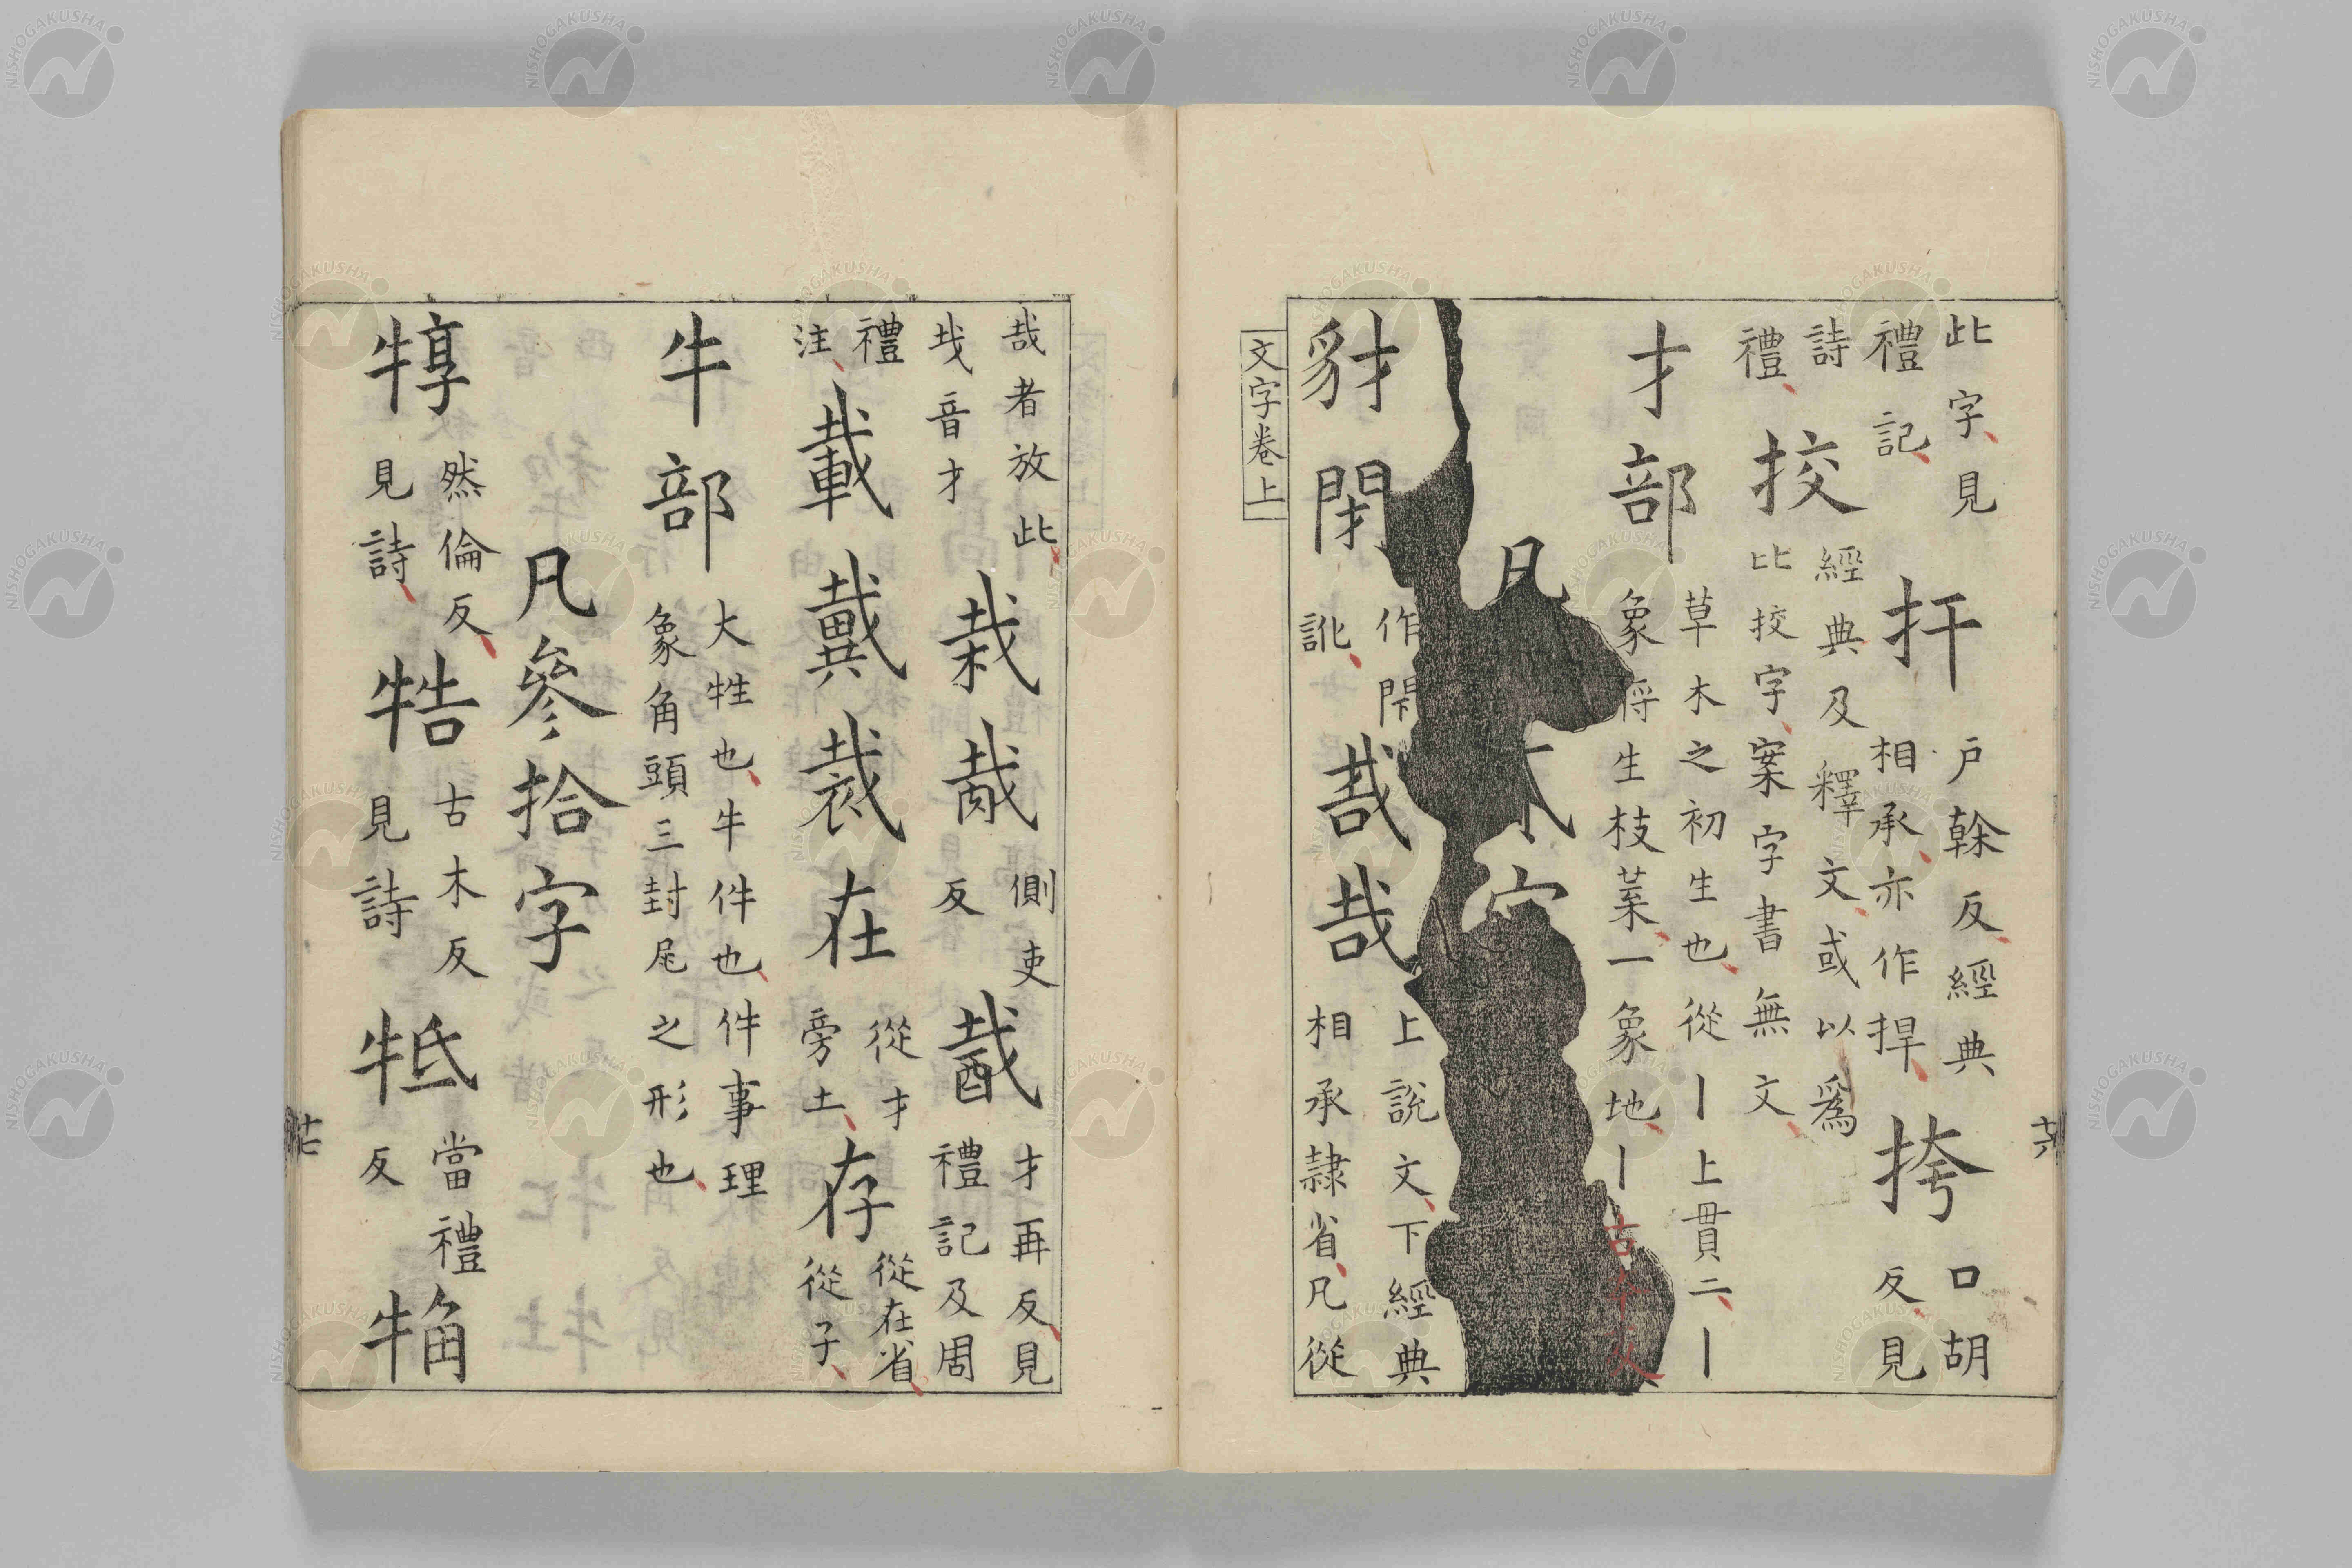 此字見禮記扞戶榦反經典相承亦作捍挎口胡反見
詩禮挍經典及釋文或以爲比挍字案字書無文
才部草木之初生也從丨上貫二丨象將生枝葉一象地丨古本反
凡六字
豺閉作閇訛𢦒哉上說文下經典相承隷省凡從
文字卷上
六
哉者放此𢦏音才栽胾側吏反酨才再反見禮記及周
禮注載戴裁在從才旁土存從在省從子
牛部大牲也牛件也件事理象角頭三封尾之形也
凡參拾字
犉然倫反見詩牿古木反見詩牴當禮反觕